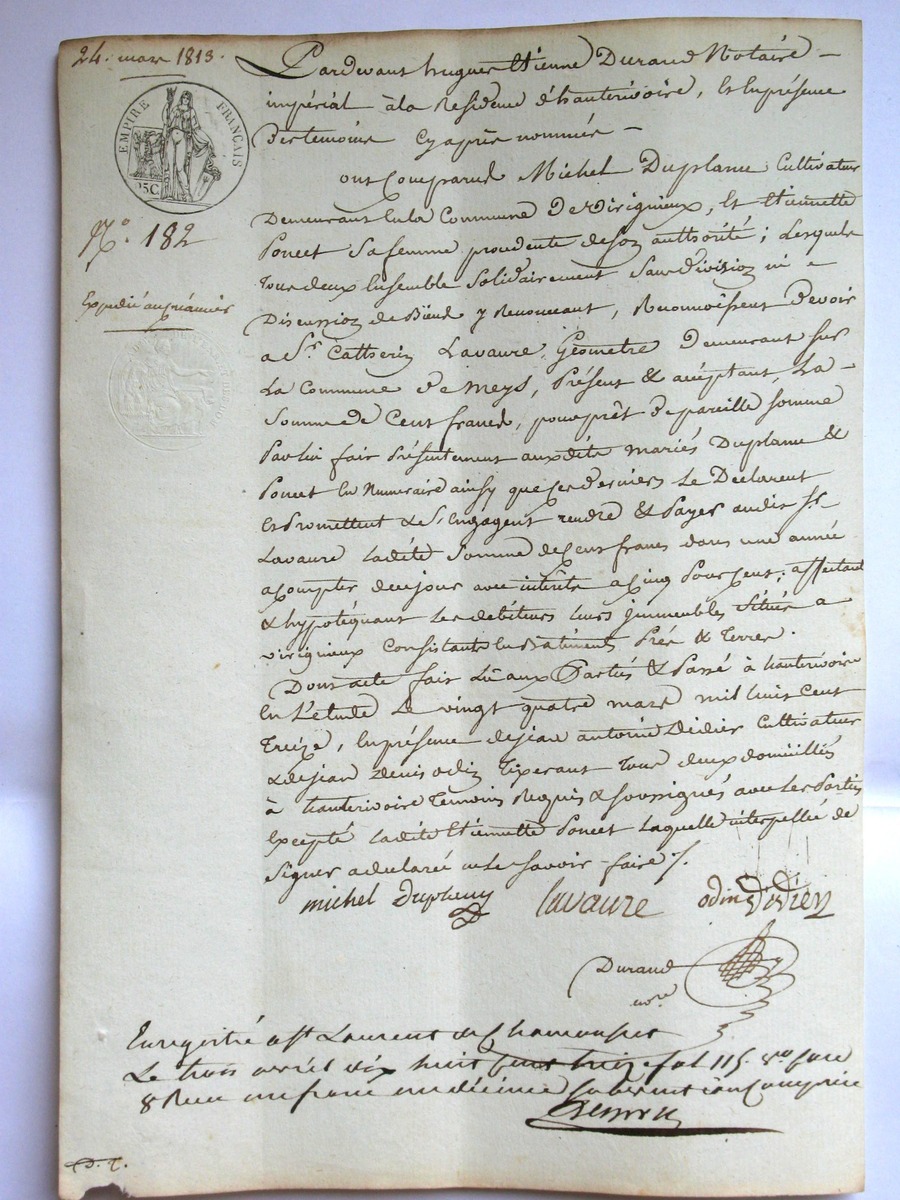 24. mars 1813.
EMPIRE FRANÇAIS
25C
N.° 182
Expédié au créancier
Pardevant hugues Etienne Durand Notaire –
impérial à la Residence d'hauterivoire, Et En présence
Des temoins Cy après nommés –
ont Comparus Michel Duplame Cultivateur
Demeurant En la Commune De Virignieux, Et Etiennette
Poncet Sa femme procedente de son authorité ; Lesquels
Tous deux Ensemble Solidairement Sans division ni
Discussion de Biens y Renoncant, Reconnoissent Devoir
a Sr. Catherin Lavaure, Géometre Demeurant sur
La Commune De Meys, Présent & acéptant, La –
Somme de Cent francs, pour prêt De pareille somme
Par lui fait Présentement auxdits mariés Duplame &
Poncet En Numeraire ainsy que ses Derniers Le Déclarent
Et Promettent & S'Engagent rendre & Payer audit Sr
Lavaure Ladite Somme de Cent francs dans une année
a Compter de ce jour avec intérêts a Cinq Pour Cent ; affectant
& hypotéquant Les debiteurs Leurs immeubles Situés a
virignieux Consistants En Batiments Prés & Terres.
Dont acte fait Lu aux Parties & Passé à hauterivoire
En L'etude Le vingt quatre mars mil huit Cent
Treize, En présence de jean antoine Didier Cultivateur
& de jean Denis odin Tixerant Tous deux domiciliés
à hauterivoire Temoins Requis & soussignés avec Les Parties
Excepté Ladite Etiennette Poncet Laquelle interpellée de
Signer a declaré ne Le Savoir faire /.
michel Duplamy lavaure odin Didier
Durand
nore
Enregistré a St Laurent de Chamousset
Le trois avril dix huit cent treize fol 115. Vo Case
8 Recu un franc un décime Subvention Comprise
D. C.